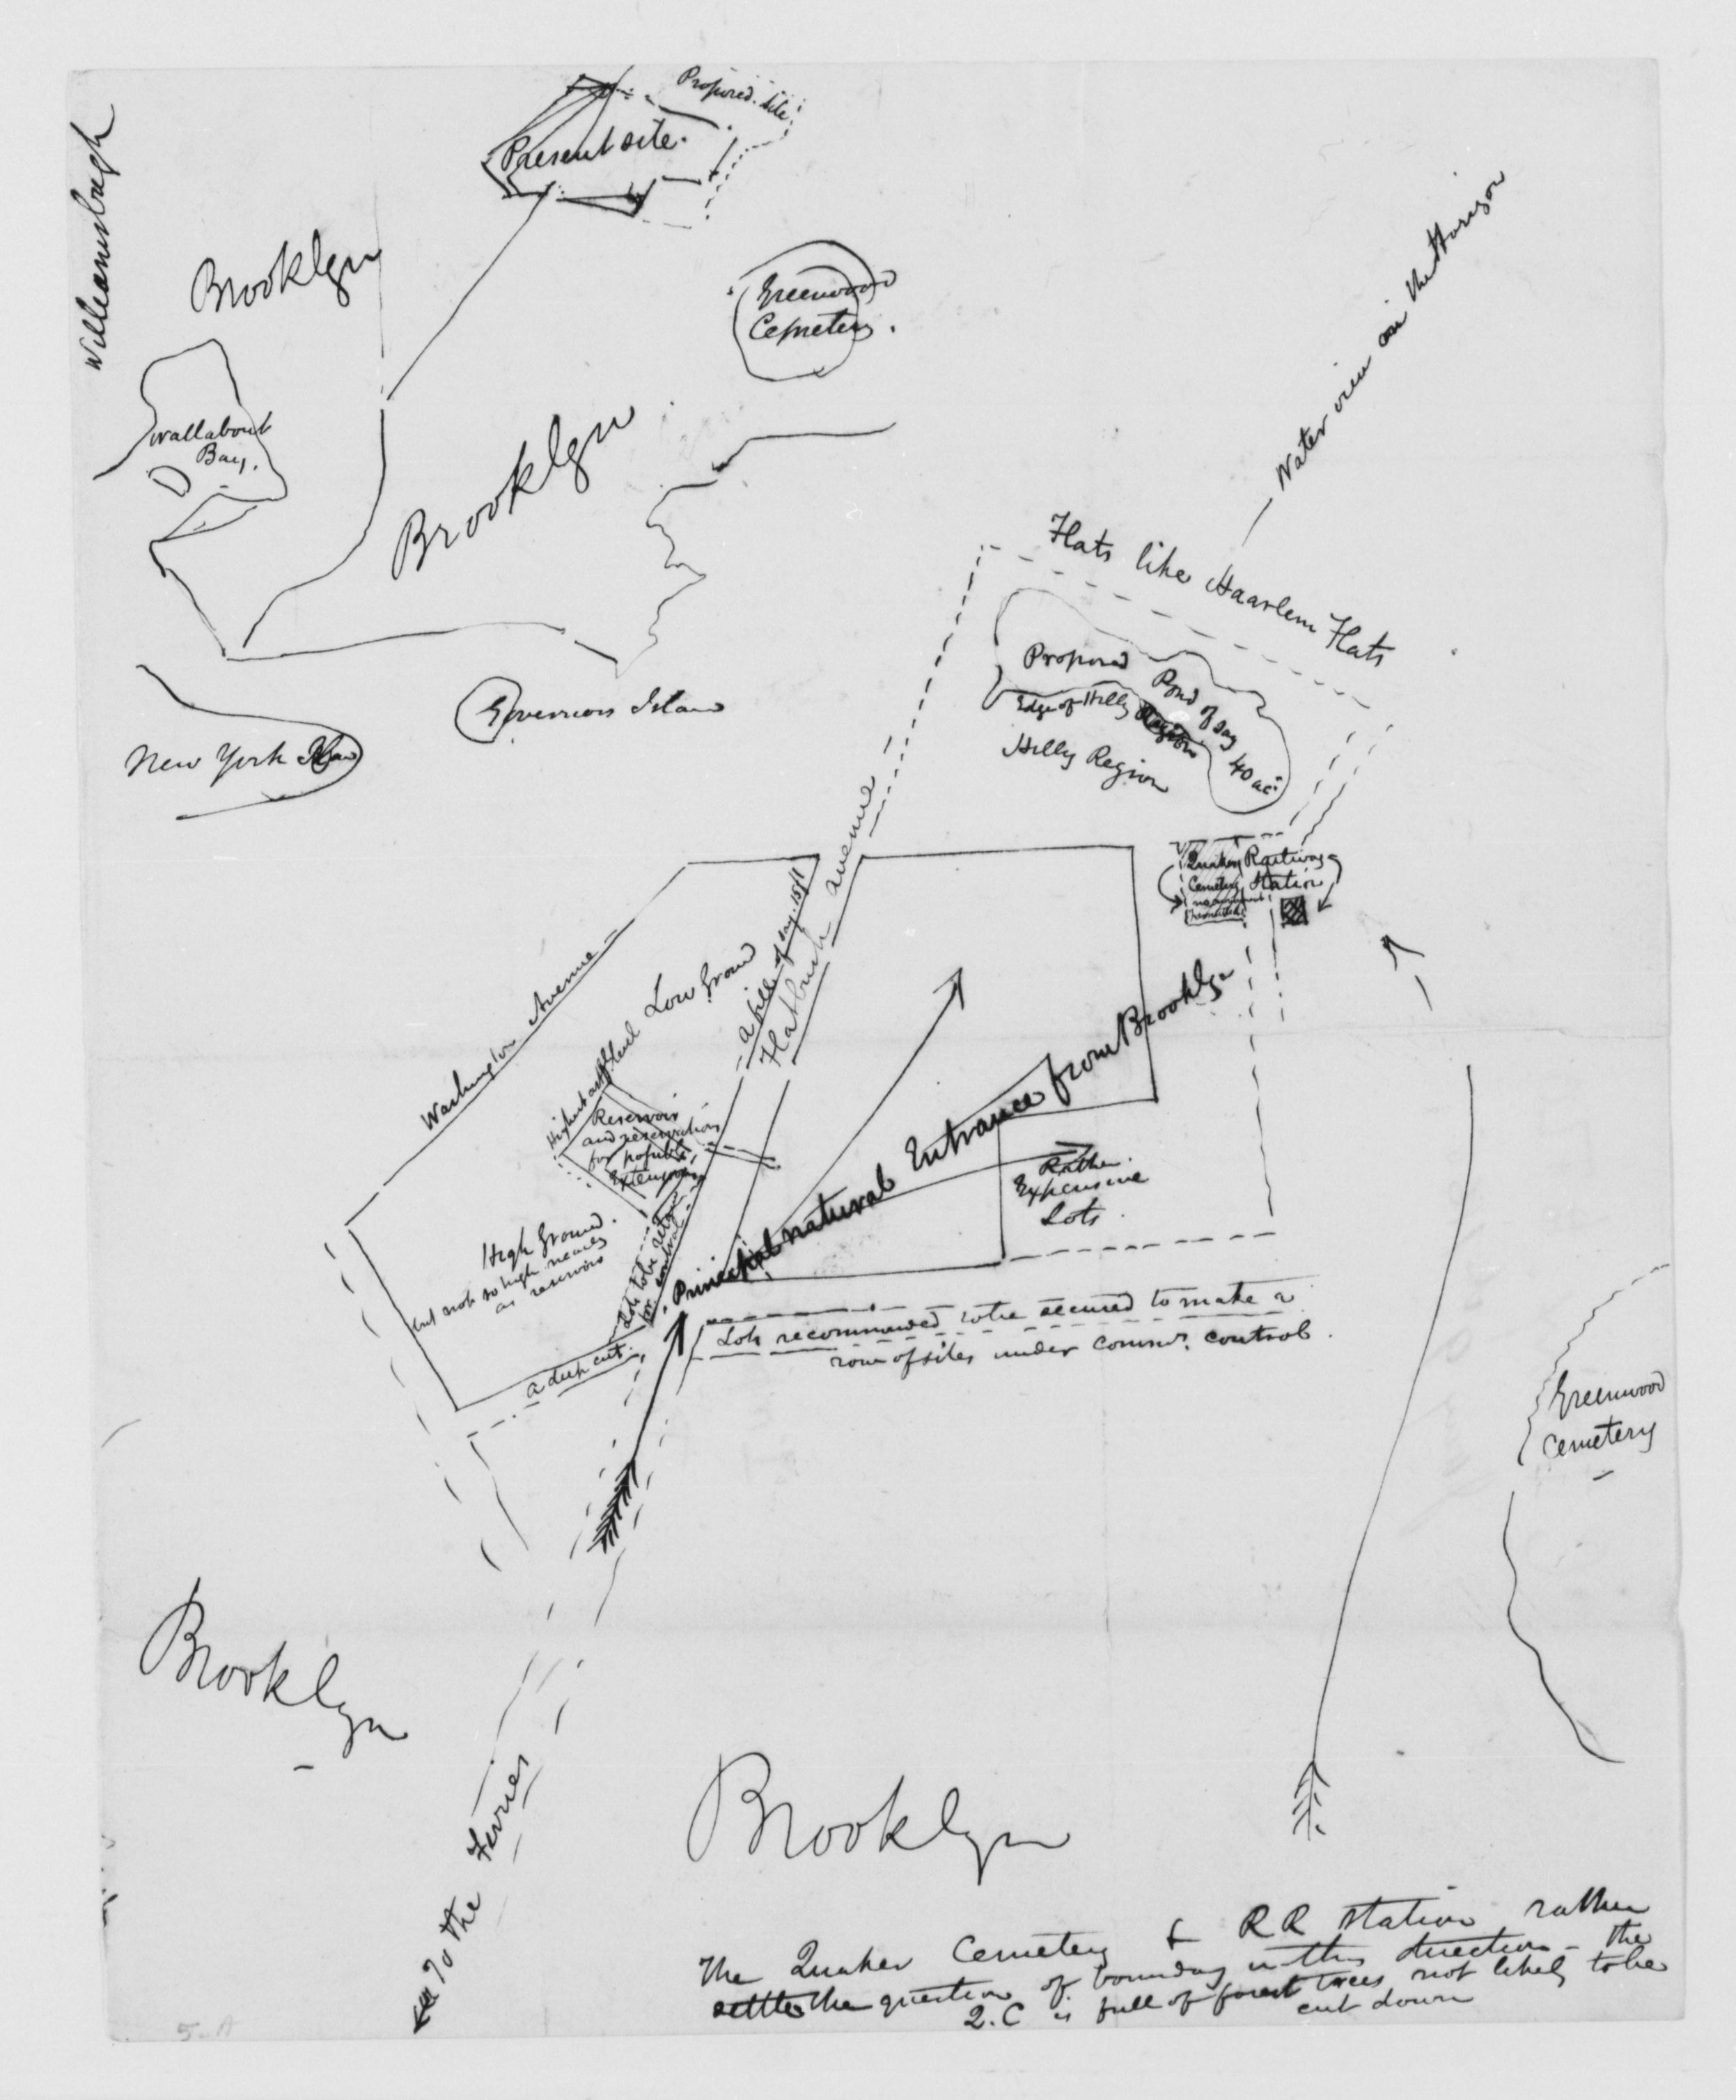 Williamsburgh
Present site.
Proposed. Site.
Brooklyn
Greenwood
Cemetery.
Wallabout
Bay.
Brooklyn
Governors Island
New York
Water view on the Horizon
Flats like Haarlem Flats
Proposed Pond of say 40 ac.
Edge of Hilly Region
Hilly Region
Quaker
Cemetery
Railway
Station
Washington Avenue
Low Ground
a fill of say
Flatbush avenue
Reservoir
and reservation
for
High Ground.
but not so high
as reservoir
Lots to be
for control
a deep cut.
Principal natural Entrance from Brooklyn
Rather
Expensive
Lots.
Lots recommended to be secured to make a
row of sites under commrs. control.
Greenwood
Cemetery
Brooklyn
To the Ferries
Brooklyn
The Quaker Cemetery & RR station rather
settles the question of boundary in this direction - the
Q.C is full of forest trees not likely to be
cut down
5-A